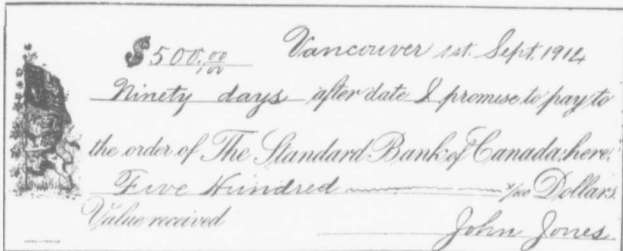 $500.00/00 Vancouver 1st. Sept. 1914
Ninety days after date I promise to pay to
the order of The Standard Bank of Canada here.
Five Hundred x/100 Dollars
Value received
John Jones